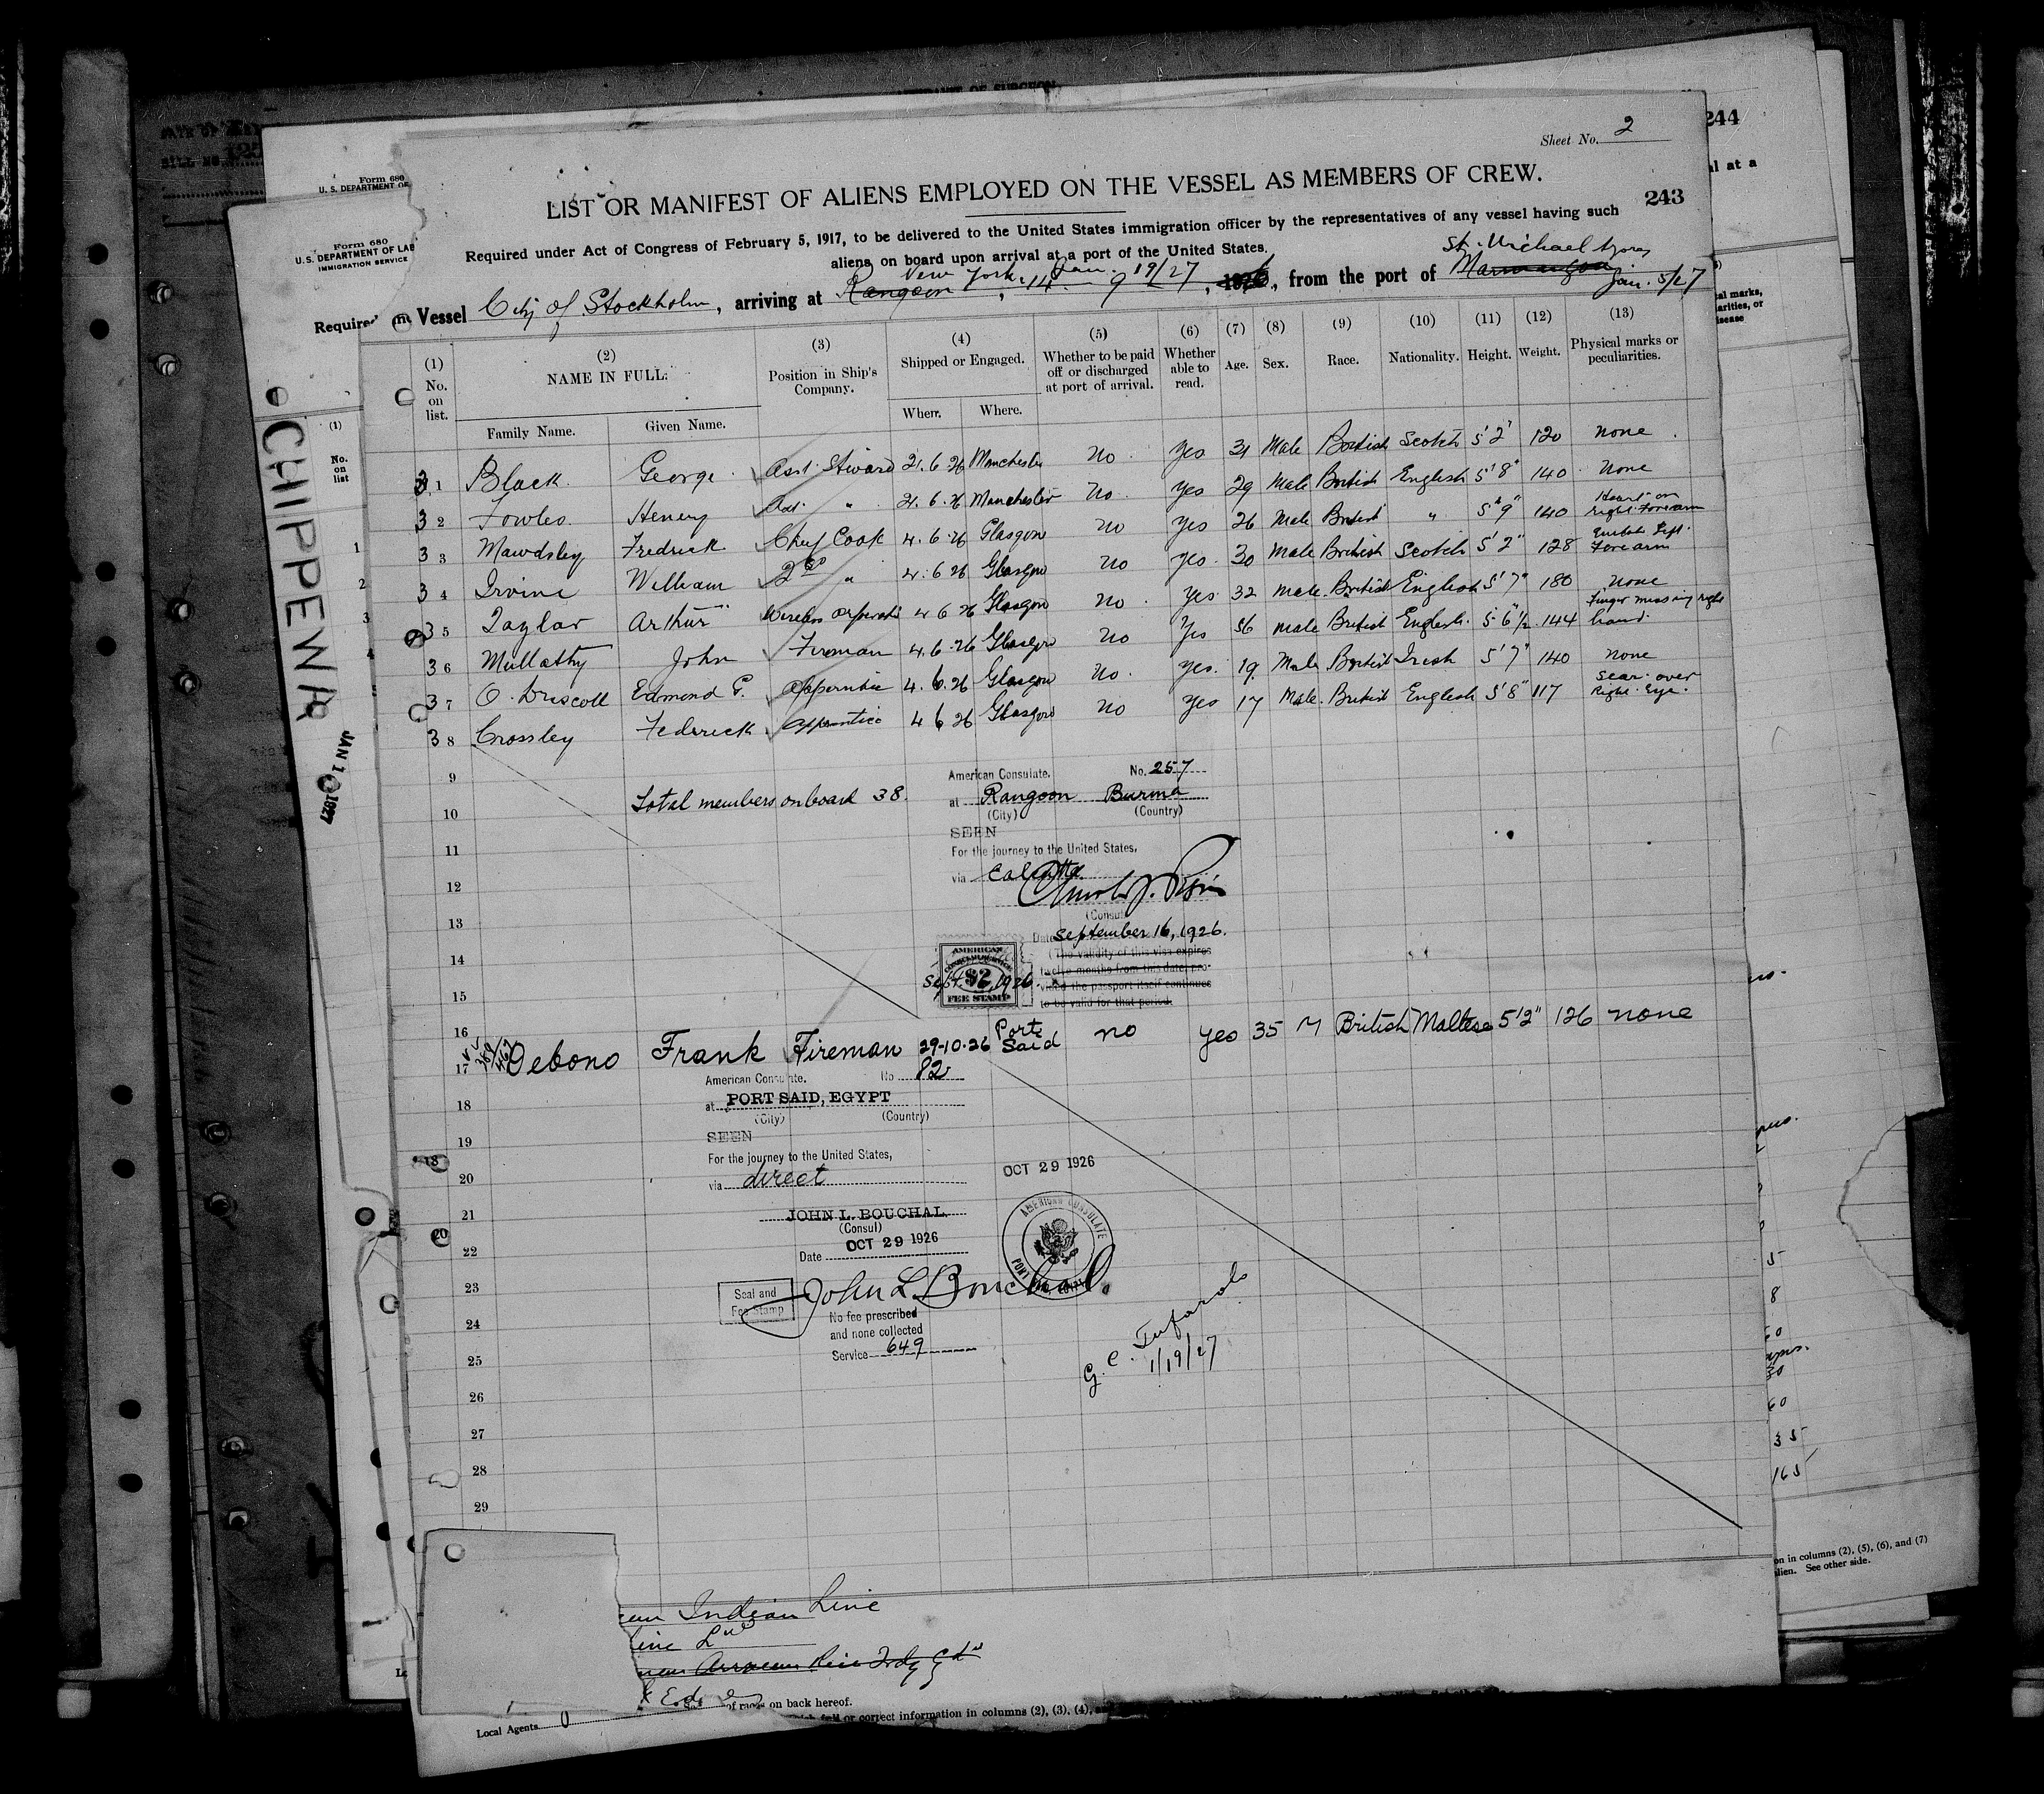 Sheet No. 2
244
243
Form 680
U. S. DEPARTMENT OF
Form 680
U. S. DEPARTMENT OF LAB
IMMIGRATION SERVICE
LIST OR MANIFEST OF ALIENS EMPLOYED ON THE VESSEL AS MEMBERS OF CREW.
Required under Act of Congress of February 5, 1917, to be delivered to the United States immigration officer by the representatives of any vessel having such
aliens on board upon arrival at a port of the United States.
New York Jan. 19/27 St. Michael Azores Jan. 5/27
Vessel City of Stockholm, arriving at Rangoon, 14 9, 1926, from the port of
(1) No. on list. (2) NAME IN FULL. (3) Position in Ship's Company. (4) Shipped or Engaged. (5) Whether to be paid off or discharged at port of arrival. (6) Whether able to read. (7) Age. (8) Sex. (9) Race. (10) Nationality. (11) Height. (12) Weight. (13) Physical marks or peculiarities.
Family Name. Given Name. When. Where.
31 Black George Asst. Steward 21.6.26 Manchester No Yes 31 Male British Scotch 5'2" 120 none
32 Fowles Henery Ast. " 21.6.26 Manchester No Yes 29 Male British English 5'8" 140 None
33 Mawdsley Fredrick Chief Cook 4.6.26 Glasgow no yes 26 Male British " 5'9" 140 Heart on right Forearm
34 Irvine William 2nd " 4.6.26 Glasgow no yes 30 Male British Scotch 5'2" 128 Left Forearm
35 Taylor Arthur Wireless 4 6 26 Glasgow no yes 32 male British English 5'7" 180 none
36 John Fireman 4.6.26 Glasgow no Yes 56 male British English 5.6½ 144 Finger missing right hand
37 O. Driscoll Edmond G. Apprentice 4.6.26 Glasgow no yes 19 Male British Irish 5'7" 140 none
38 Crossley Federick Apprentice 4 6 26 Glasgow no yes 17 Male British English 5'8" 117 Scar over Right Eye.
9
10 Total members on board 38.
American Consulate. No. 257
at Rangoon Burma
(City) (Country)
SEEN
For the journey to the United States,
via Calcutta
(Consul)
Date September 16, 1926.
(The validity of this visa expires
twelve months from this date, pro-
vided the passport itself continues
to be valid for that period.
AMERICAN
CONSULAR SERVICE
$2
FEE STAMP
Sept. 16, 1926.
11
12
13
14
15
16
17 Debono Frank Fireman 29-10-26 Port Said no yes 35 M British Maltese 5'2" 126 none
American Consulate. No 82
at PORT SAID, EGYPT
(City) (Country)
SEEN
For the journey to the United States,
via direct
OCT 29 1926
JOHN L. BOUCHAL
(Consul)
Date OCT 29 1926
AMERICAN CONSULATE
John L Bouchal.
Seal and
Fee Stamp
No fee prescribed
and none collected
Service 649
1/19/27
18
19
20
21
22
23
24
25
26
27
28
29
Indian Line
Local Agents
on back hereof.
or correct information in columns (2), (3), (4),
CHIPPEWA
on in columns (2), (5), (6), and (7)
alien. See other side.